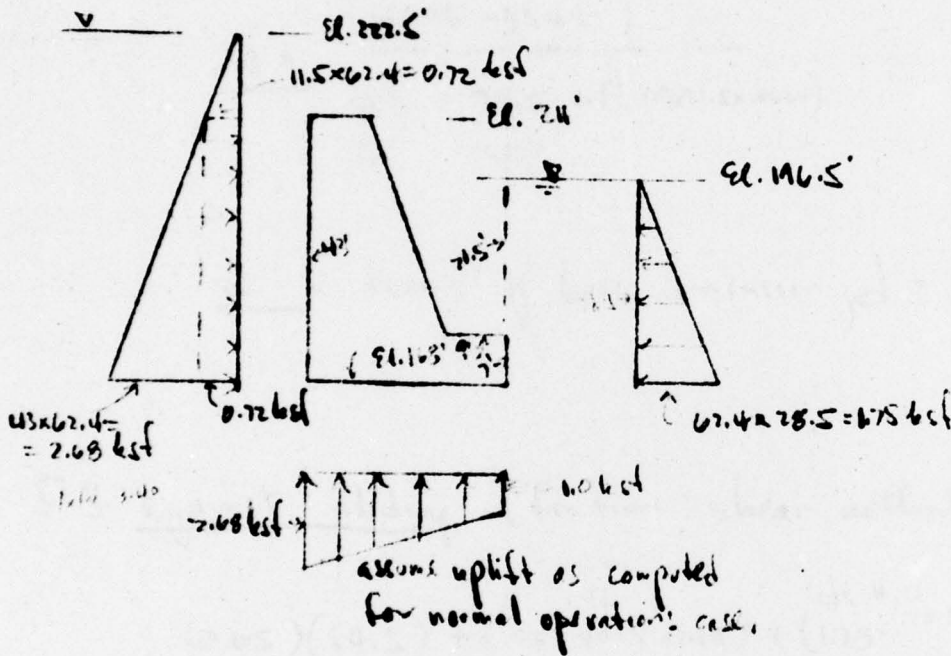 El. 222.5'
11.5×62.4 = 0.72 ksf
El. 211'
El. 196.5'
El. 168'
43×62.4=
= 2.68 ksf
0.72 ksf
62.4 x 28.5 = 1.75 ksf
2.68 ksf
1.0 ksf
assume uplift as computed
for normal operations case.